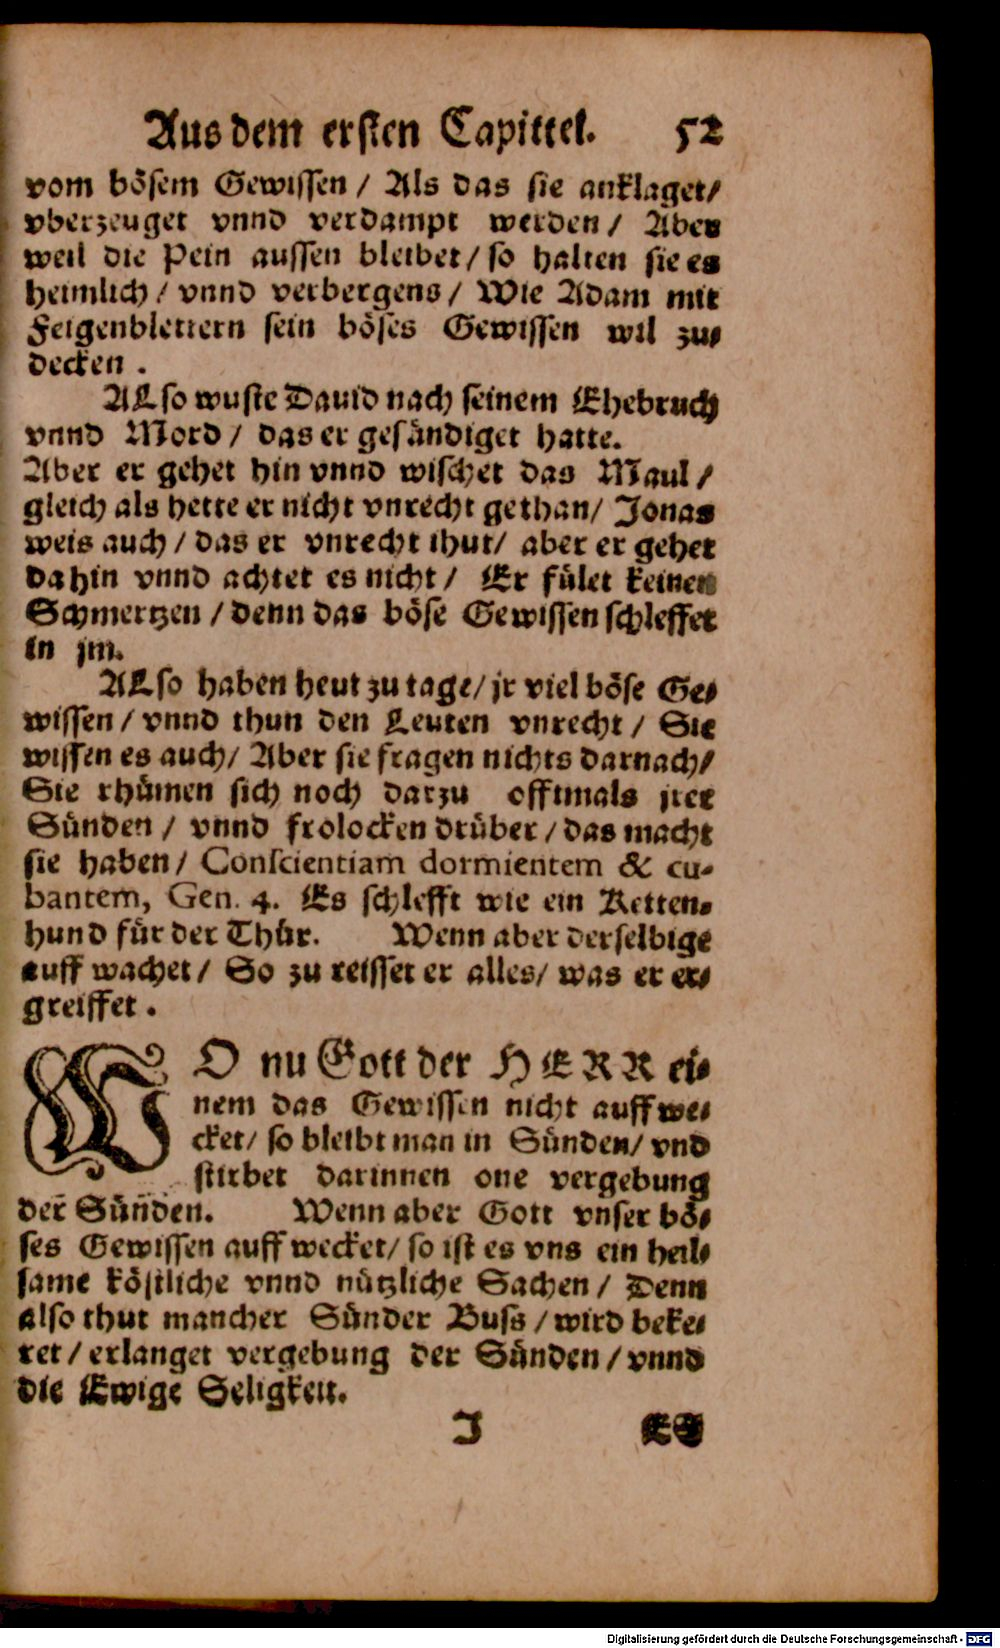 Aus dem ersten Capittel. 52
vom bösem Gewissen / Als das sie anklaget/
vberzeuget vnnd verdampt werden / Aber
weil die Pein aussen bleibet / so halten sie es
heimlich / vnnd verbergens / Wie Adam mit
Feigenblettern sein böses Gewissen wil zu-
decken .
ALso wuste Dauid nach seinem Ehebruch
vnnd Mord / das er gesündiget hatte.
Aber er gehet hin vnnd wischet das Maul /
gleich als hette er nicht vnrecht gethan/ Jonas
weis auch / das er vnrecht thut/ aber er gehet
dahin vnnd achtet es nicht / Er fület keinen
Schmertzen / denn das böse Gewissen schleffet
in jm.
ALso haben heut zu tage/ jr viel böse Ge-
wissen / vnnd thun den Leuten vnrecht / Sie
wissen es auch/ Aber sie fragen nichts darnach/
Sie rhümen sich noch darzu offtmals jrer
Sünden / vnnd frolocken drüber / das macht
sie haben / Conscientiam dormientem & cu-
bantem, Gen. 4. Es schlefft wie ein Ketten-
hund für der Thür. Wenn aber derselbige
auff wachet / So zu reisset er alles/ was er er-
greiffet .
WO nu Gott der HERR ei-
nem das Gewissen nicht auff we-
cket/ so bleibt man in Sünden/ vnd
stirbet darinnen one vergebung
der Sünden. Wenn aber Gott vnser bö-
ses Gewissen auff wecket/ so ist es vns ein heil-
same köstliche vnnd nützliche Sachen / Denn
also thut mancher Sünder Buss / wird beke-
ret / erlanget vergebung der Sünden / vnnd
die Ewige Seligkeit.
J ES
Digitalisierung gefördert durch die Deutsche Forschungsgemeinschaft - DFG